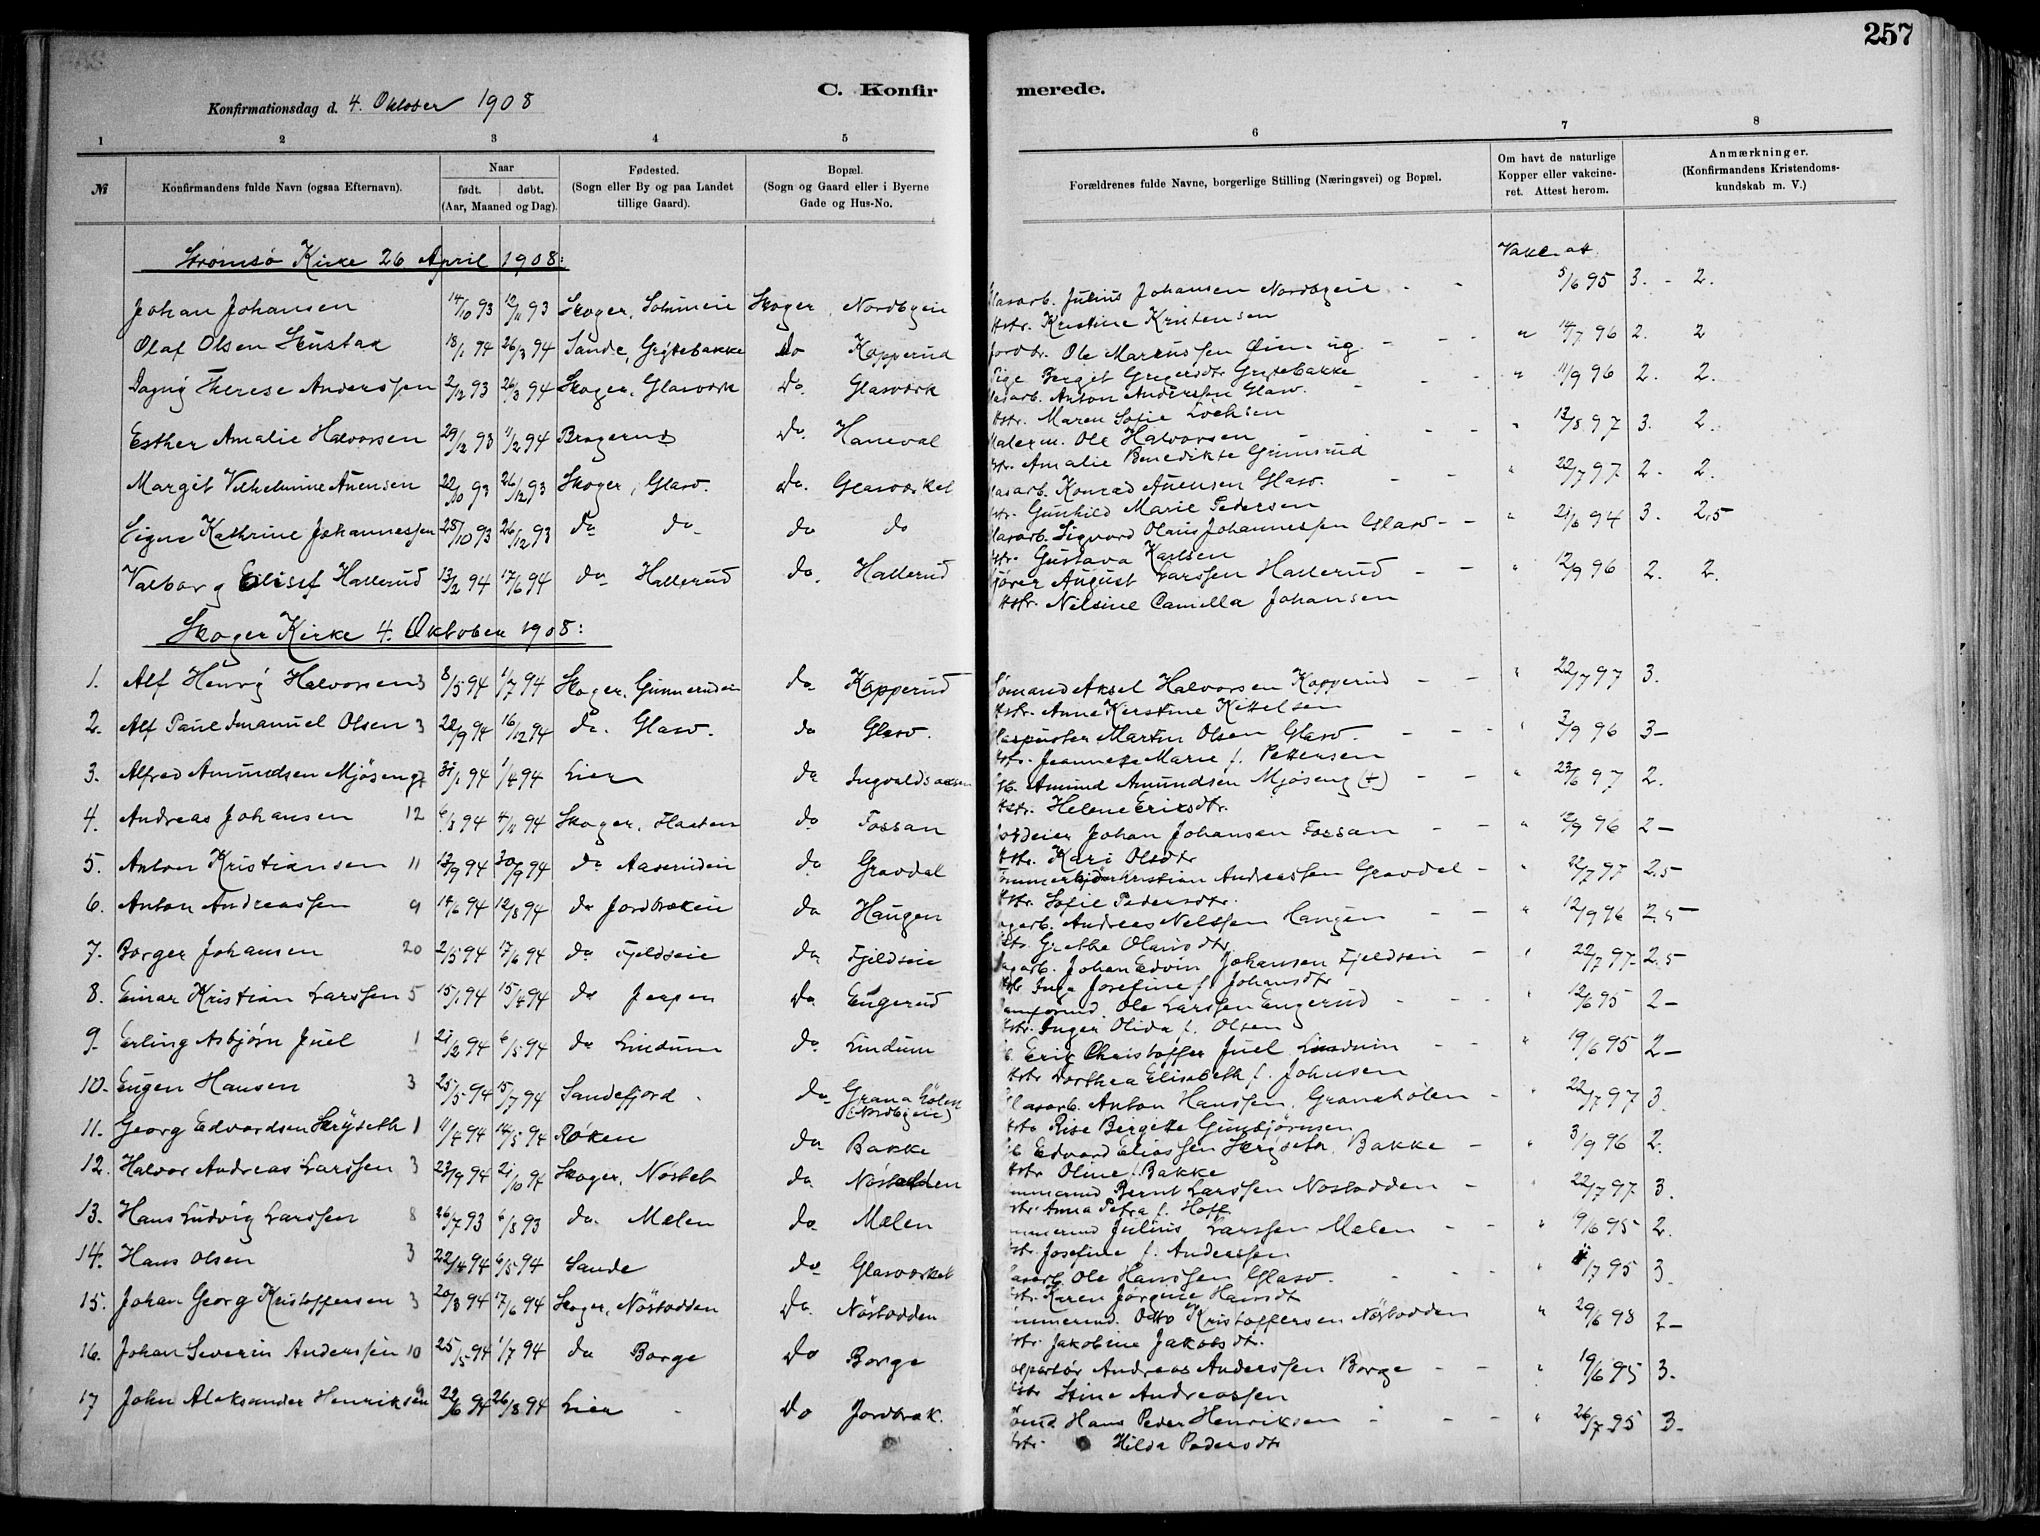 257
C. Konfirmerede.
Konfirmationsdag d. 4. Oktober 1908
1 2 3 4 5 6 7 8
№ Konfirmandens fulde Navn (ogsaa Efternavn). Naar født. døbt. (Aar, Maaned og Dag). Fødested. (Sogn eller By og paa Landet tillige Gaard). Bopæl. (Sogn og Gaard eller i Byerne Gade og Hus-No. Forældrenes fulde Navne, borgerlige Stilling (Næringsvei) og Bopæl. Om havt de naturlige Kopper eller vakcineret. Attest herom. Anmærkninger. (Konfirmandens Kristendomskundskab m. V.)
Strømsø Kirke 26 April 1908: Vakc. att.
Johan Johansen 14/10 93 12/11 93 Skoger, Solumeie Skoger, Nordbyeie Glasarb. Julius Johansen Nordbyeie 5/6 95 3. - 2.
Hstr. Kristine Kristensen
Olaf Olsen Skustad 18/1 94 26/3 94 Sande, Grytebakke do Kopperud Jordbr. Ole Markussen Øien ug. " 14/7 96 2. 2
Pige Berget Gregersdtr Grytebakke
Dagny Therese Anderssen 2/12 93 26/3 94 Skoger, Glasværk Do. Glasværk Glasarb. Anton Anderssen Glasv. " 11/9 96 2. 2.
Hstr. Maren Sofie Lochsen
Esther Amalie Halvorsen 29/12 93 11/2 94 Bragernes Do. Haneval Malerm. Ole Halvorsen " 13/8 97 3. 2.
Hstr. Amalie Benedikte Grimsrud
Margit Vilhelmine Auensen 22/10 93 26/12 93 Skoger, Glasv. Do. Glasværket Glasarb. Konrad Auensen Glasv. " 22/7 97. 2. 2.
Hstr. Gunhild Marie Pedersen
Signe Kathrine Johannessen 25/10 93 26/12 93 do do do do Glasarb. Sigvard Olaus Johannessen Glasv " 21/6 94 3. 2.5
Hstr. Gustava Karlsen
Valborg Elisef Hallerud 13/2 94 17/6 94 do Hallerud do. Hallerud Kjører August Larssen Hallerud " 12/9 96 2. 2.
Hstr. Nilsine Camilla Johansen
Skoger Kirke 4. Oktober 1908:
1. Alf Henry Halvorsen 3 8/5 94 1/7 94 Skoger, Gunnerudeie do Kopperud Sømand Aksel Halvorsen Kopperud " 22/7 97 3.
Hstr. Anne Kerstine Kittelsen
2. Alf Paul Imanuel Olsen 3 22/9 94 16/12 94 do. Glasv. do Glasv. Glaspuster Martin Olsen Glasv. " 2/9 96 3-
Hstr. Jeannette Marie f. Pettersen
3. Alfred Amundsen Mjøseng 7 31/1 94 1/4 94 Lier do Ingvaldsaasen Gb. Amund Amundsen Mjøseng (+) " 23/6 97 2.
Hstr. Helene Eriksdtr.
4. Andreas Johansen 12 6/8 94 4/11 94 Skoger, Flaaten do Fossan Jordeier Johan Johansen Fossan " 12/9 96 2-
Hstr. Kari Olsdtr
5. Anton Kristiansen 11 13/9 94 30/9 94 do Aaserudeie do Gravdal Tømmerkjører Kristian Andreassen Gravdal " 22/7 97 2.5
Hstr. Sofie Pedersdtr.
6. Anton Andreassen 9 14/6 94 12/8 94 do Jordbrækeie do Haugen Dagarb. Andreas Nelssen Haugen " 12/9 96 2.5
Hstr. Grethe Olausdtr
7. Borger Johansen 20 2/5 94 17/6 94 do Fjeldseie do Fjeldseie Dagarb. Johan Edvin Johansen Fjeldseie " 22/7 97. 2.5
Hstr. Inga Josefine f. Johansdtr
8. Einar Kristian Larssen 5 15/1 94 15/4 94 do Jespen Do. Eugerud Ole Larssen Eugerud " 12/6 95 2-
Hstr. Inger Olida f. Olsen
9. Erling Asbjørn Juel 1 21/2 94 6/5 94 do Lindum do. Lindum Gb. Erik Christoffer Juel Lindum " 19/6 95 2-
Hstr Dorthea Elisabeth f. Johnsen
10. Eugen Hansen 3 25/5 94 15/7 94 Sandefjord do Granahölen (Nordbyeie) Glasarb. Anton Hanssen, Granahølen " 22/7 97 3.
Hstr Rise Bergitte Gunbjörnsen
11. Georg Edvardsen Skryseth 1 11/4 94 14/5 94 Røken do Bakke Gb Edvard Eliassen Skryseth, Bakke " 3/9 96 2.
Hstr Oline f. Bakke
12. Halvor Andreas Larssen 3 23/9 94 21/10 94 Skoger, Nöstet do Nöstodden Tømmermd Bernt Larssen Nöstodden " 22/7 97 3.
Hstr. Anna Petra f. Hoff
13. Hans Ludvig Larssen 8 26/7 93 6/8 93 do. Mælen do Mælen Tømmermd Julius Larssen Mælen " 9/6 95 2.
Hstr. Josefine f. Anderssen
14. Hans Olsen 3 22/4 94 6/5 94 Sande do Glasværket Glasarb Ole Hanssen Glasv. " /7 95 3.
Hstr. Karen Jørgine Hansdt
15. Johan Georg Kristoffersen 3 20/3 94 17/6 94 Skoger, Nöstodden Do. Nöstodden Tømmermd. Otto Kristoffersen Nöstodden " 29/6 98 2-
Hstr. Jakobine Jakobsdtr.
16. Johan Severin Anderssen 10 25/5 94 1/7 94 do Borge Do Borge Andreas Anderssen Borge " 19/6 95 3.
Hstr Stine Andreassen
17 John Aleksander Henriksen 9 22/6 94 26/8 94 Lier Do Jordbræk. Sømd Hans Peder Henriksen " 26/7 95 3.
Hstr. Hilda Pedersdtr